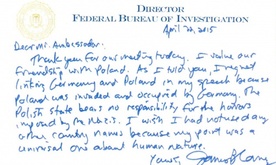 DIRECTOR
FEDERAL BUREAU OF INVESTIGATION
April 22, 2015
Dear Mr. Ambassador -
Thank you for our meeting today. I value our
friendship with Poland. As I told you, I regret
linking Germany and Poland in my speech because
Poland was invaded and occupied by Germany. The
Polish State bears no responsibility for the horrors
imposed by the Nazis. I wish I had not used any
other country names because my point was a
universal one about human nature.
Yours,